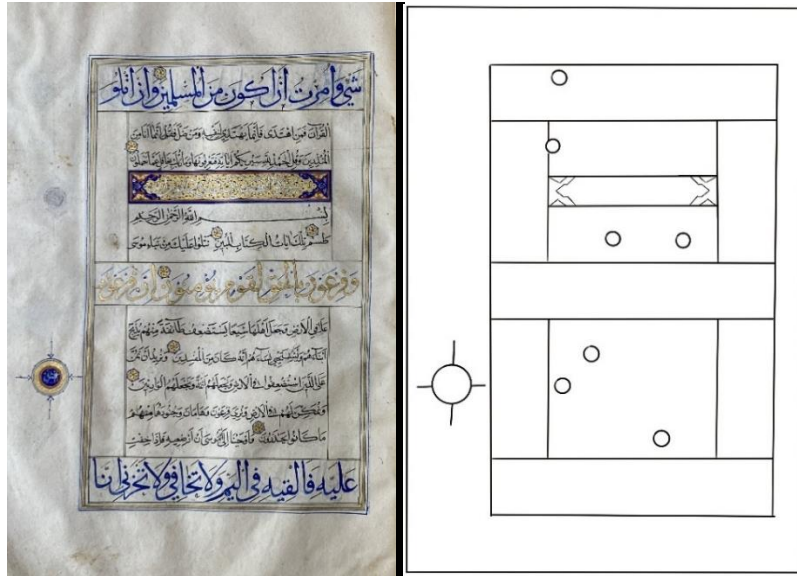 شيء وأمرت أن أكون من المسلمين وأن أتلو
القرآن فمن اهتدى فإنما يهتدي لنفسه ومن ضل فقل إنما أنا من
المنذرين وقل الحمد لله سيريكم آياته فتعرفونها وما ربك بغافل عما تعملون
بسم الله الرحمن الرحيم
طسم تلك آيات الكتاب المبين نتلوا عليك من نباء موسى
وفرعون بالحق لقوم يؤمنون إن فرعون
علا في الأرض وجعل أهلها شيعا يستضعف طائفة منهم يذبح
أبناءهم ويستحيي نساءهم إنه كان من المفسدين ونريد أن نمن
على الذين استضعفوا في الأرض ونجعلهم أئمة ونجعلهم الوارثين
ونمكن لهم في الأرض ونري فرعون وهامان وجنودهما منهم
ما كانوا يحذرون وأوحينا إلى أم موسى أن أرضعيه فإذا خفت
عليه فألقيه في اليم ولا تخافي ولا تحزني إنا